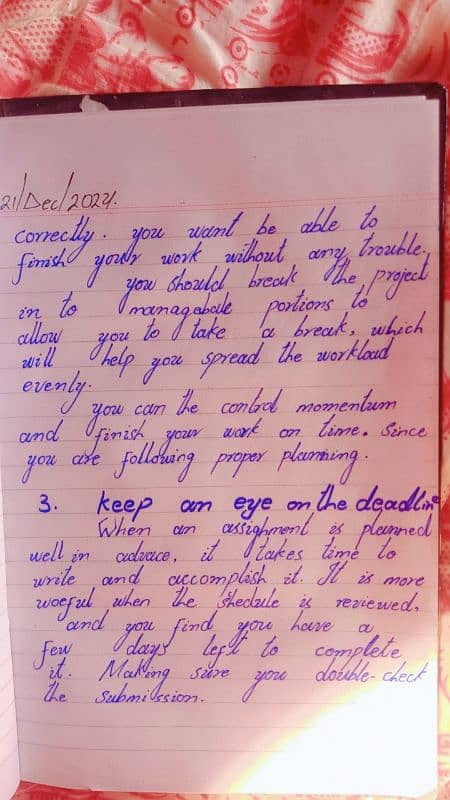 21/Dec/2024.
correctly. you want be able to
finish your work without any trouble.
you should break the project
in to managabale portions to
allow you to take a break, which
will help you spread the workload
evenly.
you can the control momentum
and finish your work on time. Since
you are following proper planning.
3. keep an eye on the deadline
When an assighment is planned
well in advace, it takes time to
write and accomplish it. It is more
woeful when the shedule is reviewed,
and you find you have a
few days left to complete
it. Making sure you double-check
the submission.